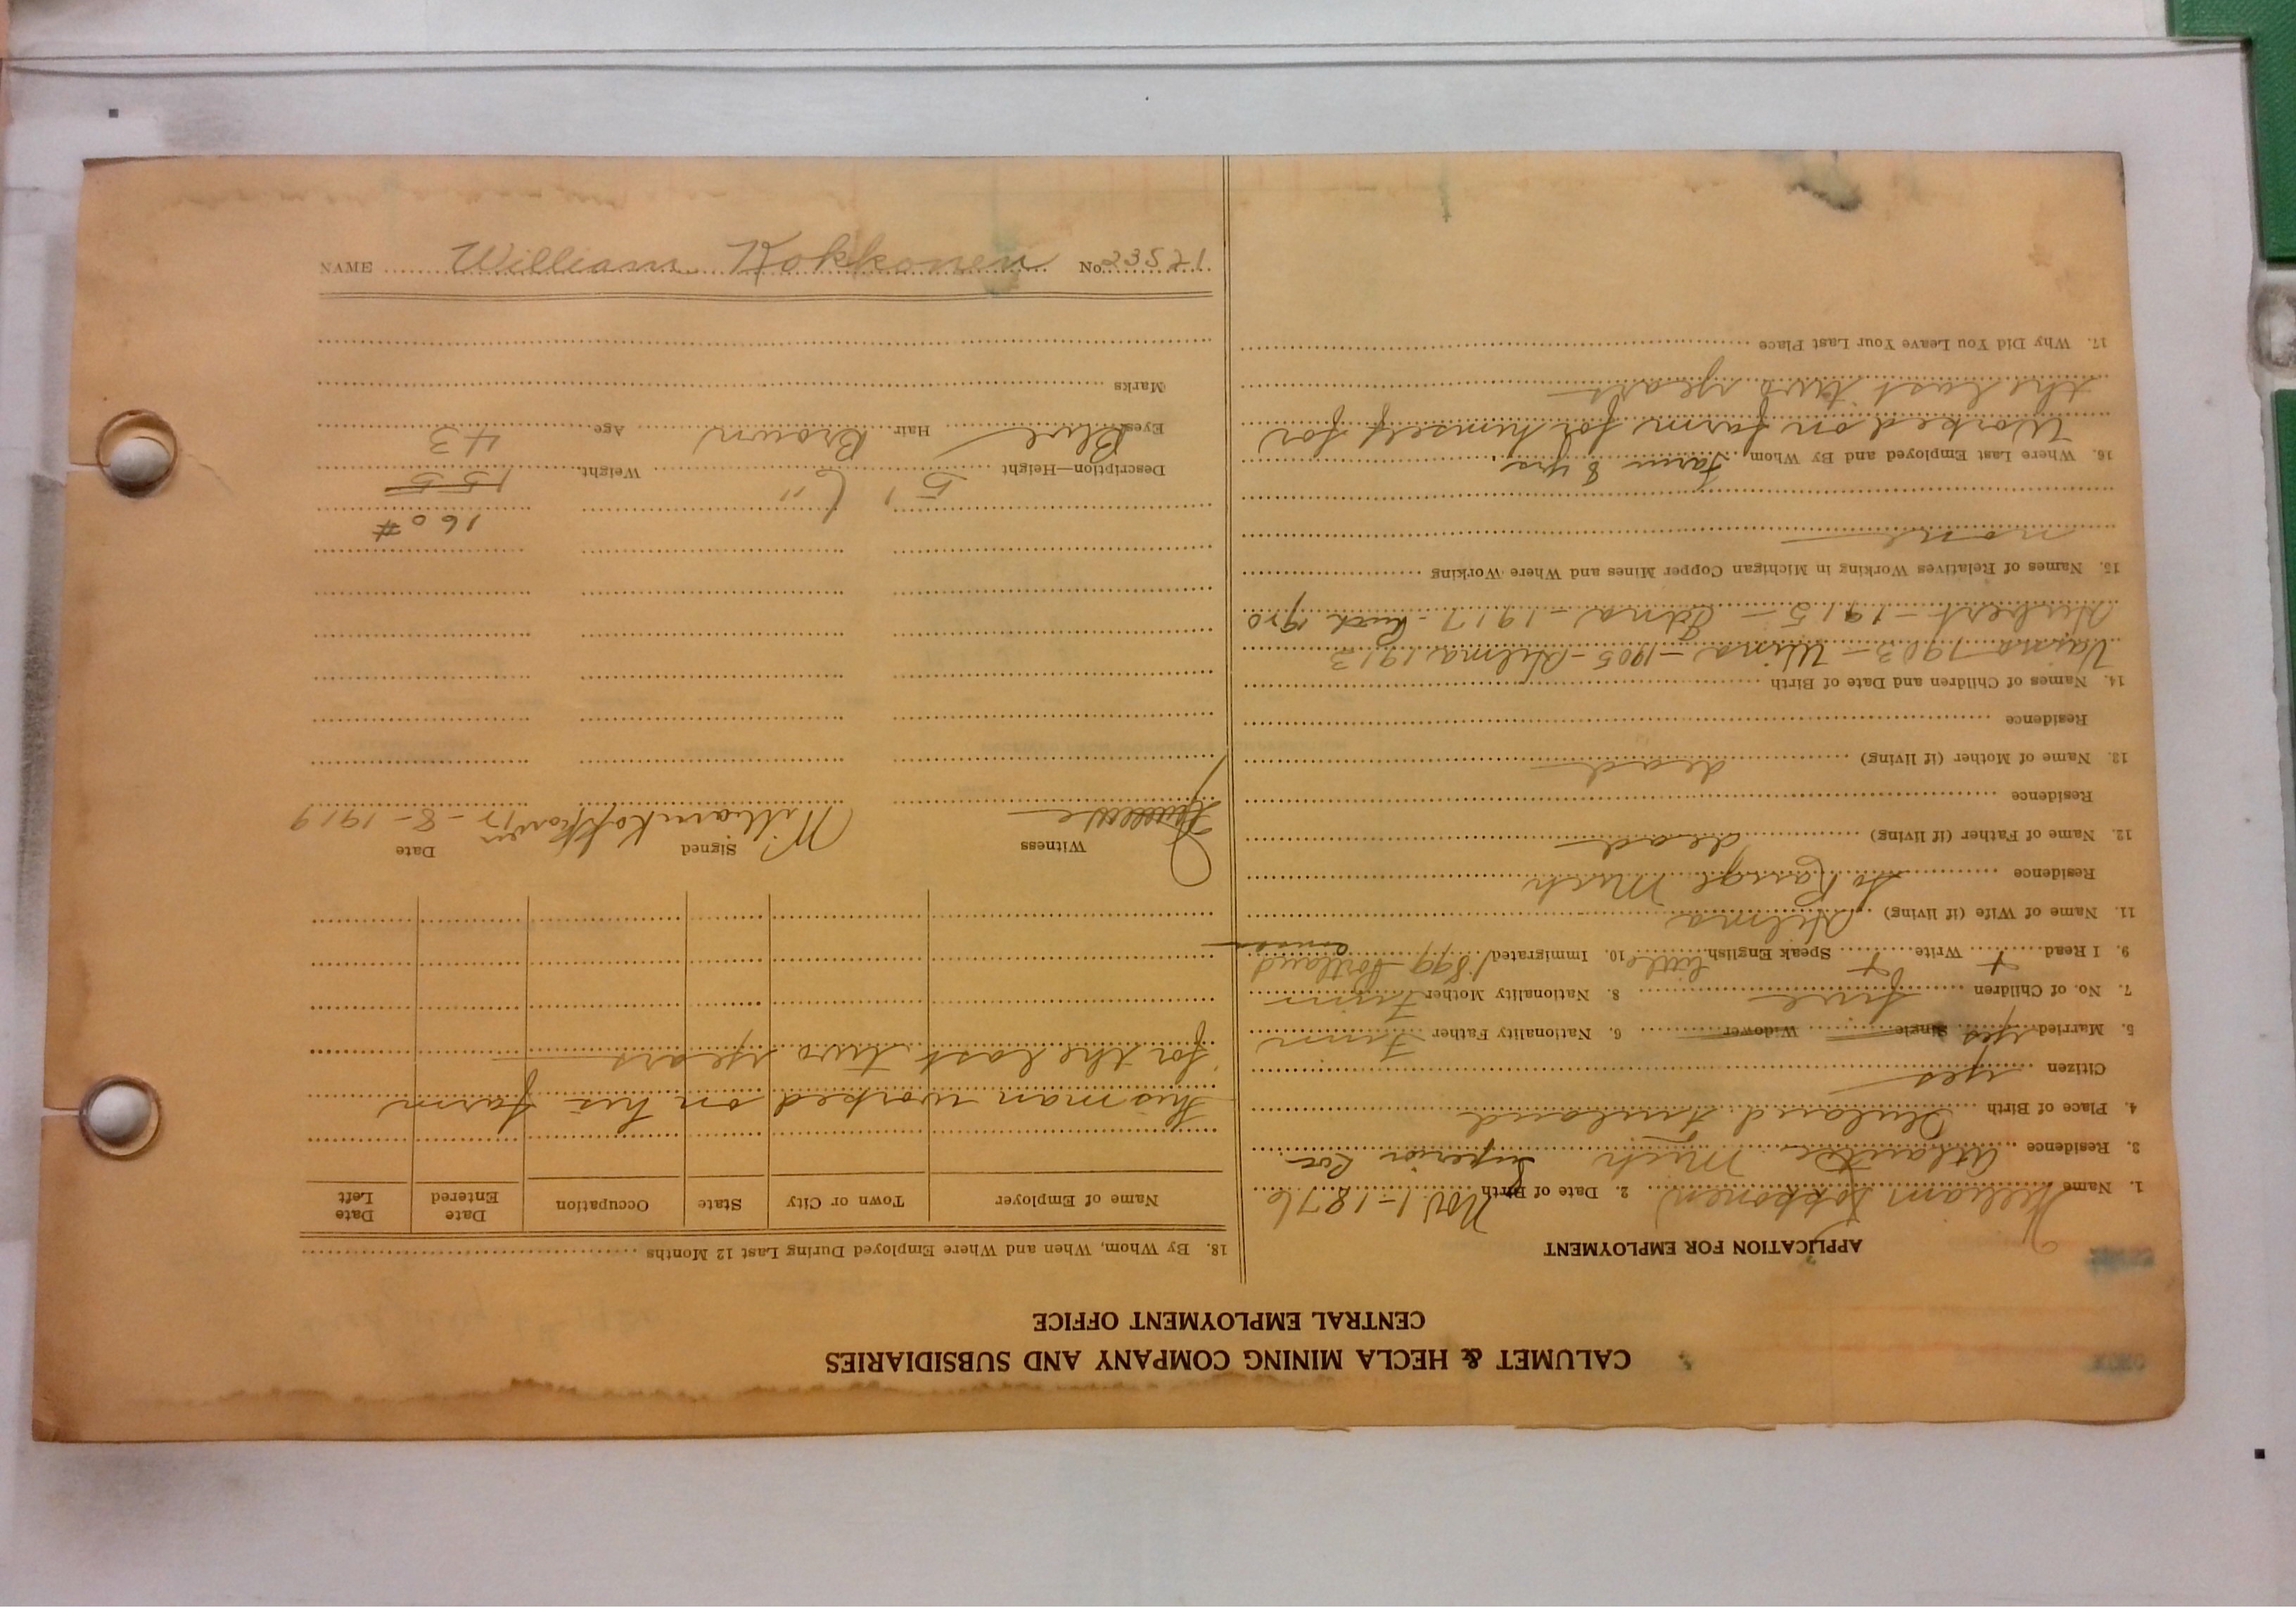 CALUMET & HECLA MINING COMPANY AND SUBSIDIARIES
CENTRAL EMPLOYMENT OFFICE
APPLICATION FOR EMPLOYMENT
1. Name William Kokkonen 2. Date of Birth Nov 1-1876
3. Residence Atlantic Mich Superior Loc
4. Place of Birth Finland
Citizen yes
5. Married yes Single Widower 6. Nationality Father Finn
7. No. of Children five 8. Nationality Mother Finn
9. I Read + Write + Speak English little 10. Immigrated 1899 Portland
11. Name of Wife (if living) Hilma
Residence So Range Mich
12. Name of Father (if living) dead
Residence
13. Name of Mother (if living) dead
Residence
14. Names of Children and Date of Birth
Vaina 1903 - Wina - 1905 - Hilma 1913
Hubert - 1915 - Edna - 1917 - Ruth 1920
15. Names of Relatives Working in Michigan Copper Mines and Where Working
none
16. Where Last Employed and By Whom Farm 8 yrs
Worked on farm for himself for
the last two years
17. Why Did You Leave Your Last Place
18. By Whom, When and Where Employed During Last 12 Months
Name of Employer Town or City State Occupation Date Entered Date Left
This man worked on his farm
for the last two years
Witness Signed Date
William Kokkonen 8-1919
160 #
Description—Height 5' 6" Weight 155
Eyes Blue Hair Brown Age 43
Marks
NAME William Kokkonen No. 23521